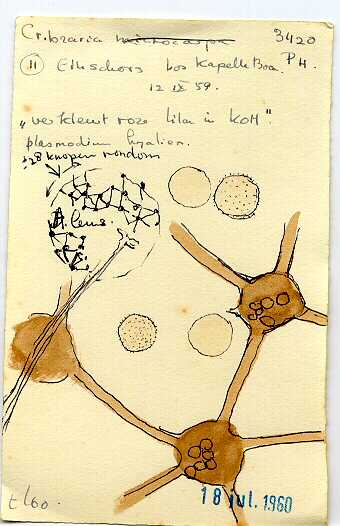 Cribraria microcarpa 3420
11 Eikschors bos Kapelle Boa. PH.
12 IX 59.
„verkleurt roze lila in KOH".
plasmodium hyalien.
±28 knopen rondom
t/60.
18 jul. 1960